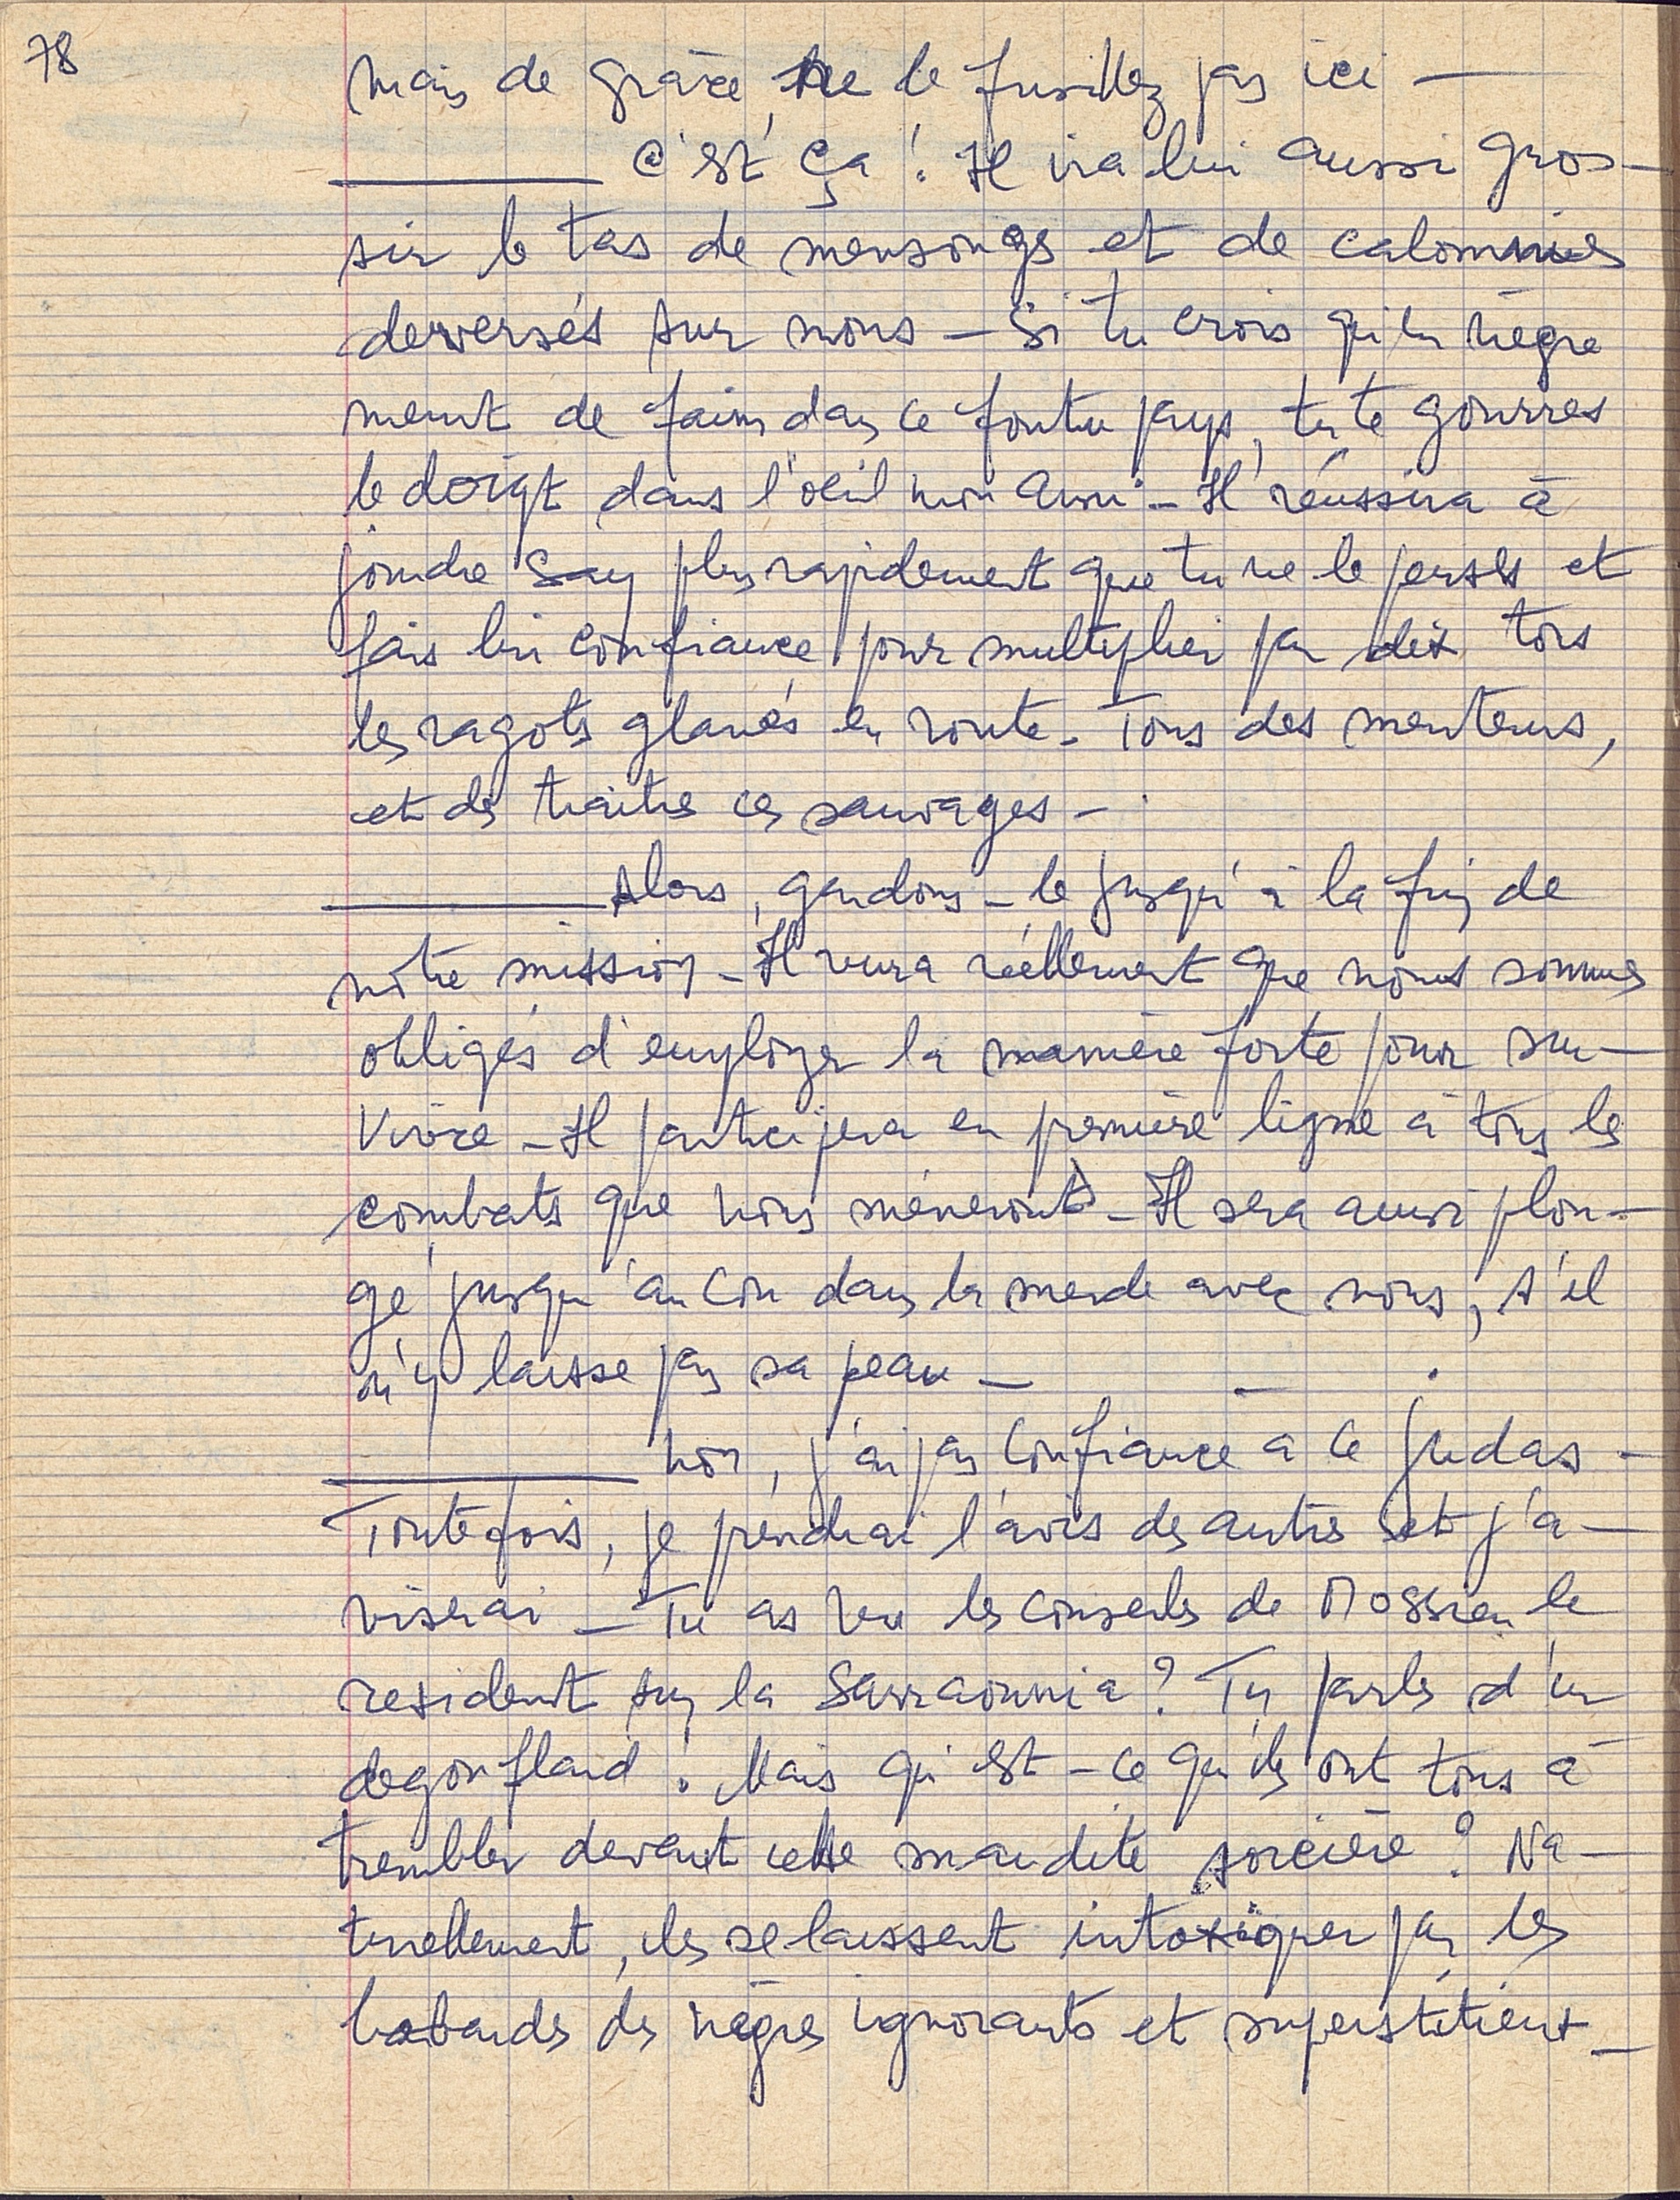 78
Mais de grâce, ne le fusillez pas ici —
——— C'est ça ! Il ira lui aussi gros-
sir le tas de mensonges et de calomnies
déversés sur nous — Si tu crois qu'un nègre
meurt de faim dans ce foutu pays, tu te gourres
le doigt dans l'œil mon ami — Il réussira à
joindre Say plus rapidement que tu ne le penses et
fais lui confiance pour multiplier par dix tous
les ragots glanés en route — Tous des menteurs,
et des traîtres ces sauvages —
——— Alors, gardons-le jusqu'à la fin de
notre mission — Il verra réellement que nous sommes
obligés d'employer la manière forte pour sur-
vivre — Il participera en première ligne à tous les
combats que nous mèneront — Il sera aussi plon-
gé jusqu'au cou dans la merde avec nous, s'il
n'y laisse pas sa peau —
——— Non, j'ai pas confiance à ce Judas —
Toutefois, je prendrai l'avis des autres et j'a-
viserai — Tu as vu les conseils de Mossieu le
résident sur la Sarraounia ? Tu parles d'un
dégonflard ! Mais qu'est-ce qu'ils ont tous à
trembler devant cette maudite sorcière ? Na-
turellement, ils se laissent intoxiquer par les
bobards des nègres ignorants et superstitieux —